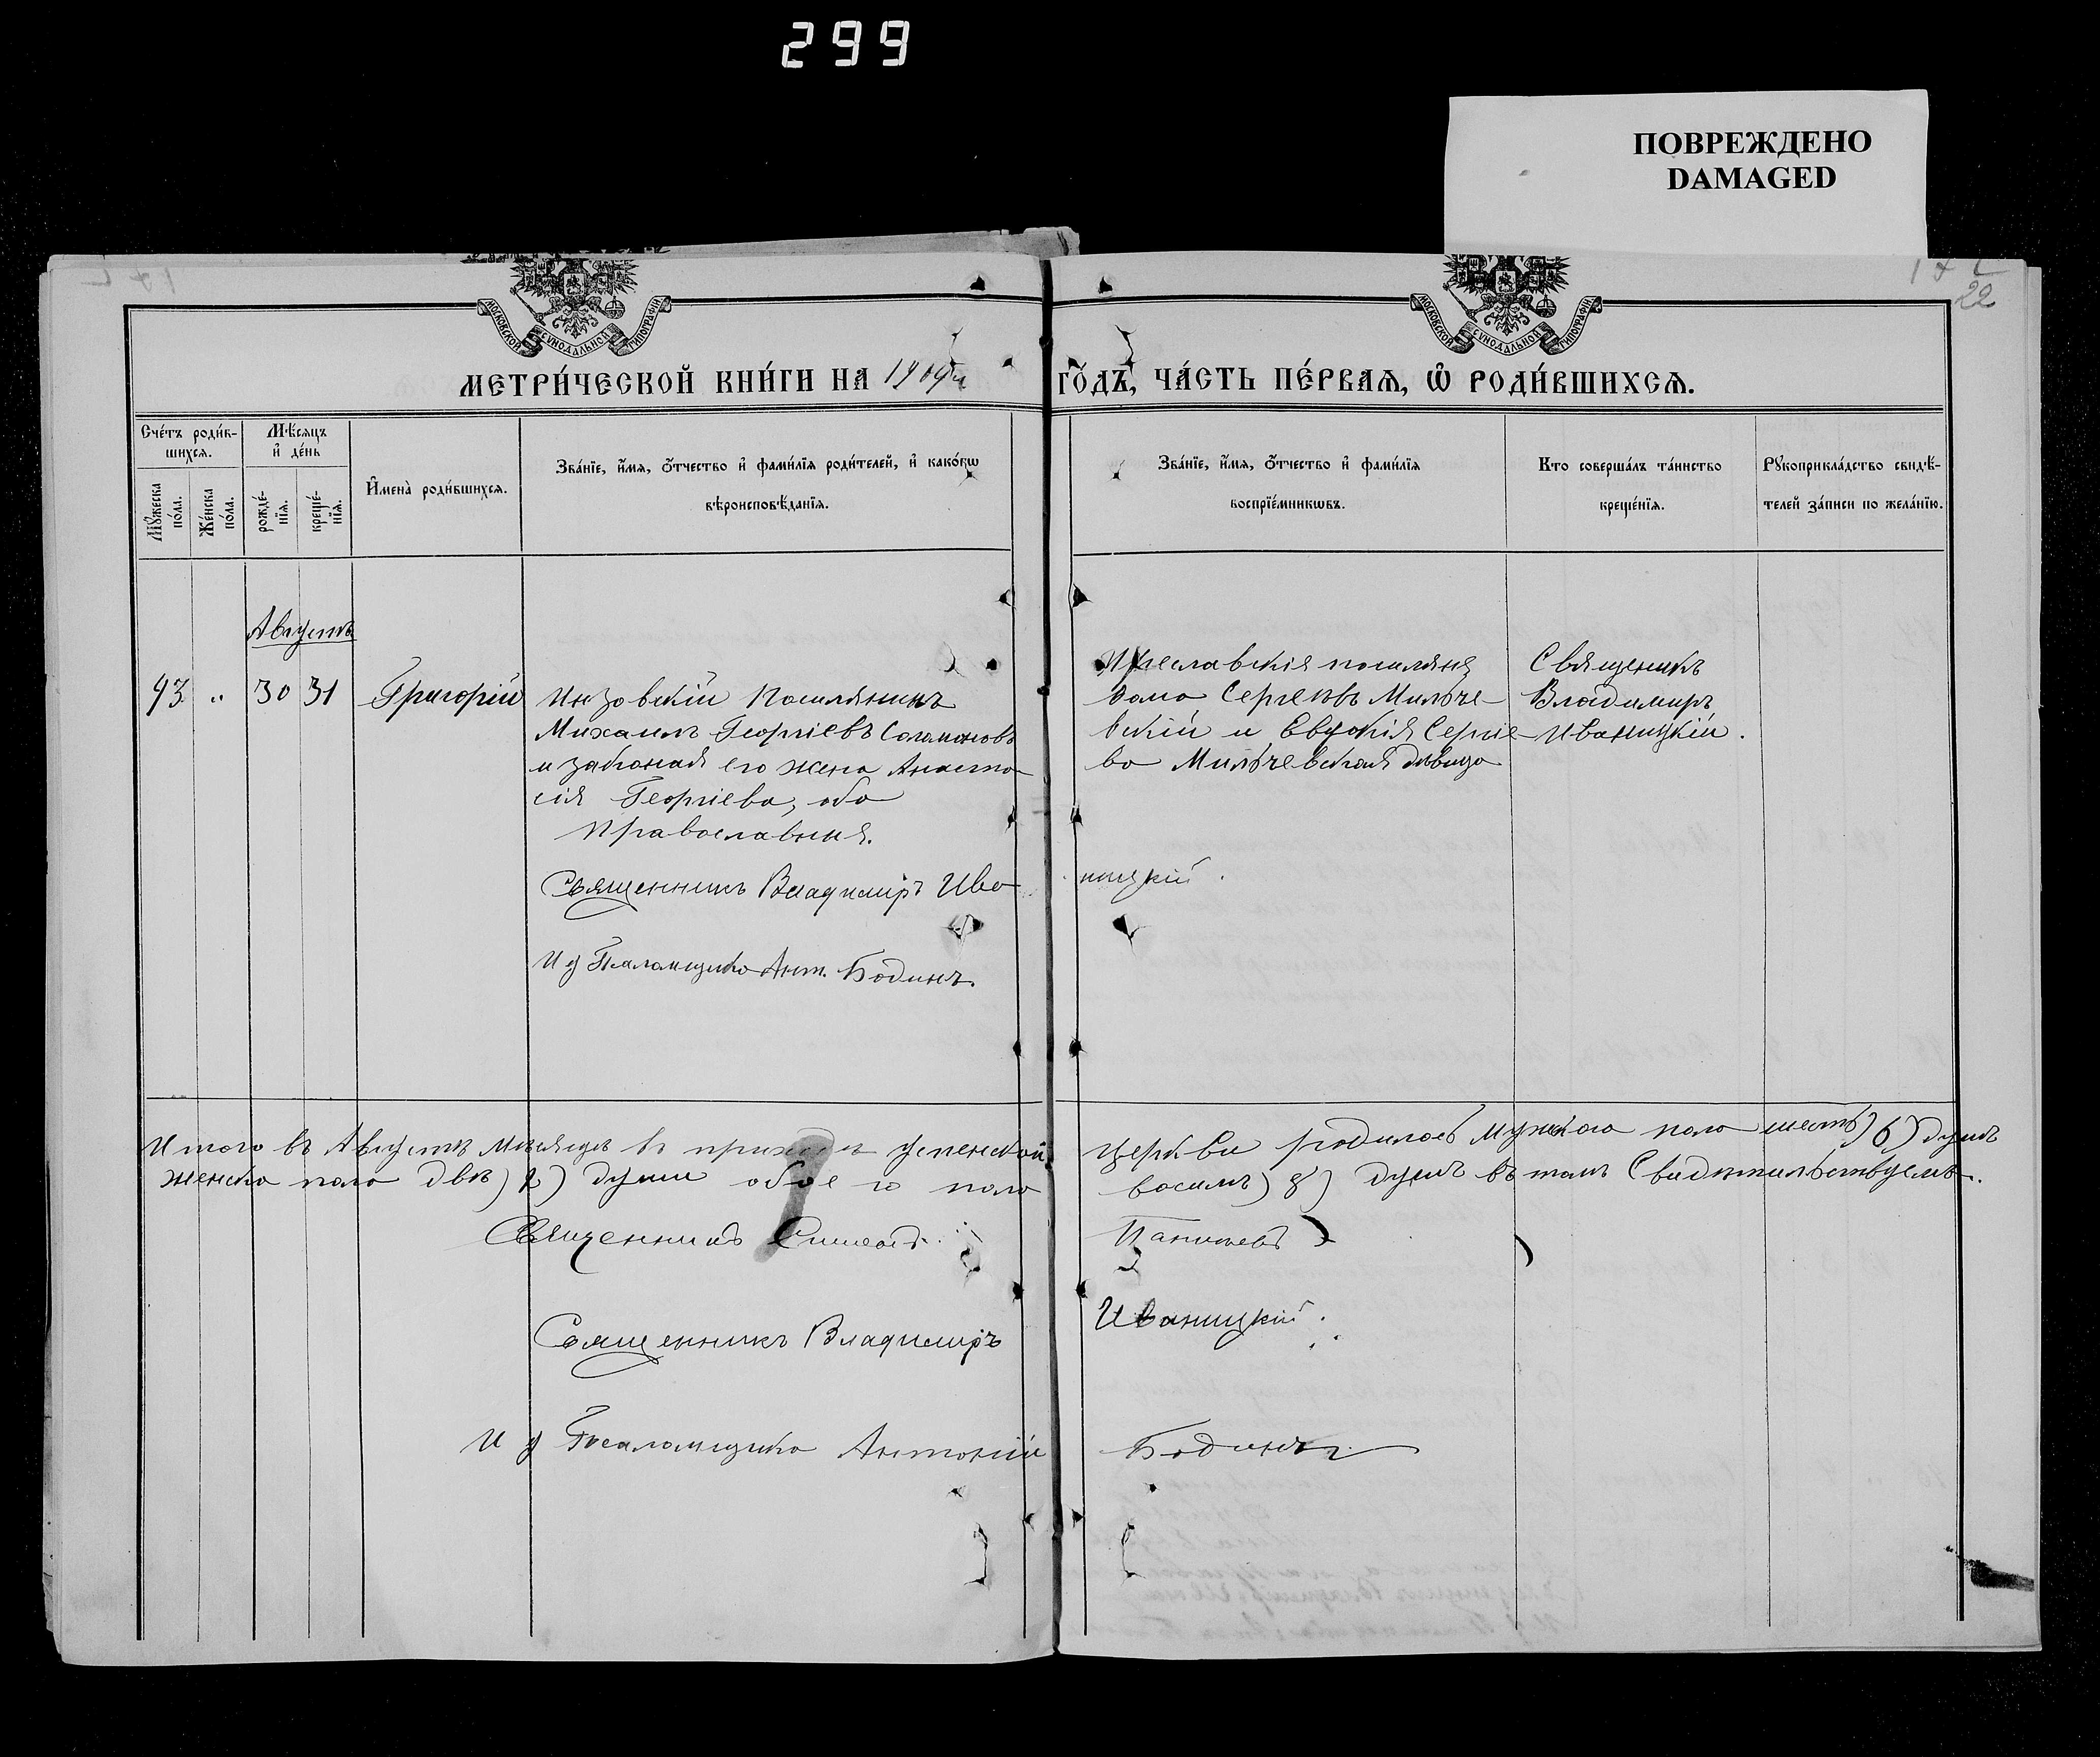 299
ПОВРЕЖДЕНО
DAMAGED
22
МОСКОВСКОЙ СѴНОДАЛЬНОЙ ТИПОГРАФІИ
МОСКОВСКОЙ СѴНОДАЛЬНОЙ ТИПОГРАФІИ
МЕТРИ́ЧЕСКОЙ КНИ́ГИ НА 1909й ГО́ДЪ, ЧА́СТЬ ПЕ́РВАѦ, Ѽ РОДИ́ВШИХСѦ.
Сче́тъ роди́вшихсѧ.
Мꙋ́жеска по́ла.
Же́нска по́ла.
Мѣ́сѧцъ и҆ де́нь
рожде́нїѧ.
креще́нїѧ.
И҆мена̀ роди́вшихсѧ.
Зва́нїе, и҆́мѧ, ѻ҆́тчество и҆ фами́лїѧ роди́телей, и҆ како́гѡ
вѣроисповѣ́данїѧ.
Зва́нїе, и҆́мѧ, ѻ҆́тчество и҆ фами́лїѧ
воспрїе́мникѡвъ.
Кто соверша́лъ та́инство
креще́нїѧ.
Рꙋкоприкла́дство свидѣ́-
телей за́писи по жела́нїю.
Августъ
43 " 30 31 Григорій
Инзовскій поселянинъ
Михаилъ Георгіевъ Соломоновъ
и законая его жена Анаста-
сія Георгіева, оба
православныя.
Преславскія поселяня
Сергеевъ Мильче-
вскій и Евдокія Сергіе-
ва Мильчевская дѣвица
Священикъ
Владимиръ
Иваницкій.
Священникъ Владиміръ Ива-ницкій.
И д Псаломщика Ант. Бодинъ.
Итого въ Августѣ мѣсяцѣ въ приходѣ Успенской церкви родилось мужскаго пола шесть) 6) душъ
женска пола двѣ) 2) души обоего пола восемь) 8) душъ въ томъ Свидѣтельствуемъ.
Священникъ
Священникъ Владиміръ Иваницкій.
И д Псаломщика Антоній Бодинъ